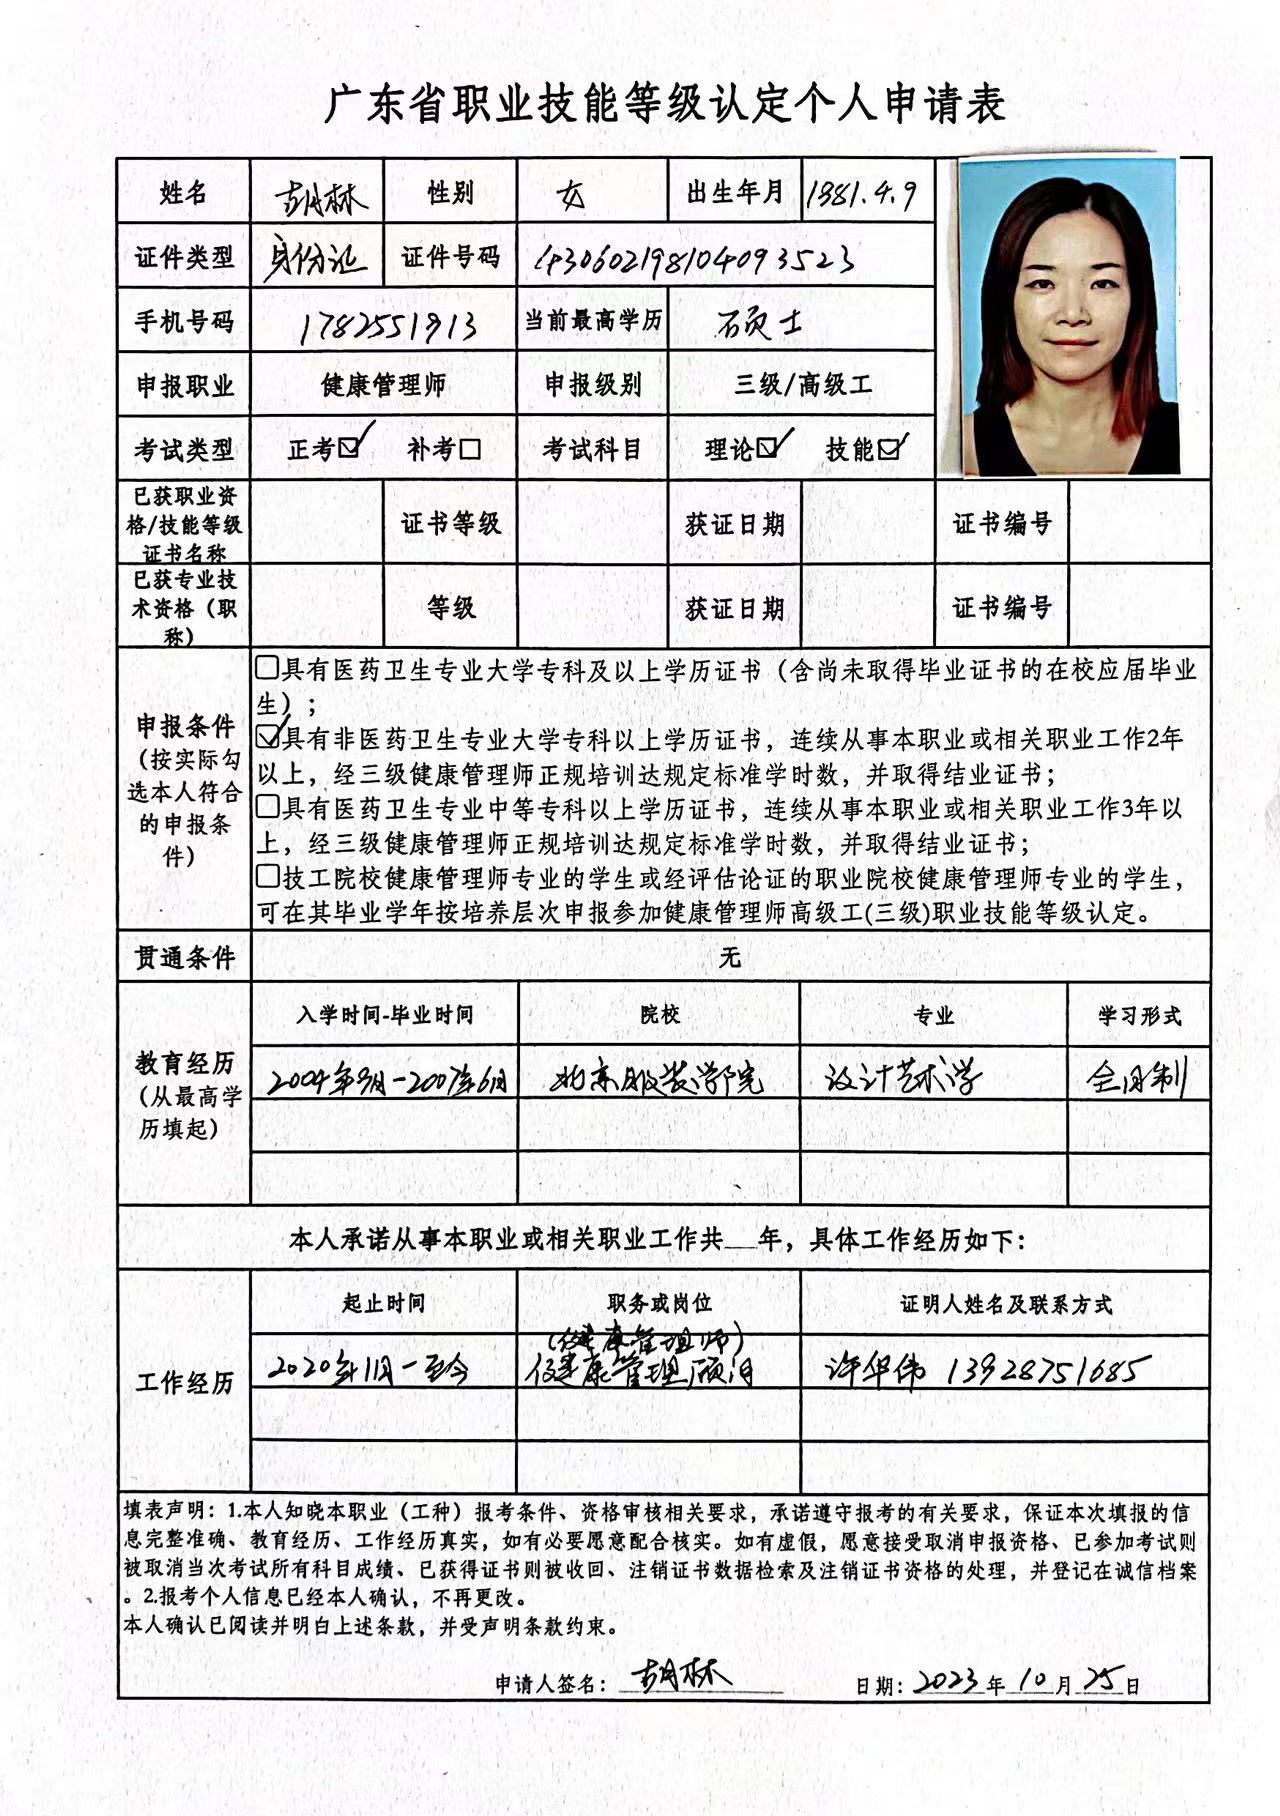 广东省职业技能等级认定个人申请表
姓名 胡林 性别 女 出生年月 1981.4.9
证件类型 身份证 证件号码 430602198104093523
手机号码 1782551913 当前最高学历 硕士
申报职业 健康管理师 申报级别 三级/高级工
考试类型 正考☑ 补考□ 考试科目 理论☑ 技能☑
已获职业资格/技能等级证书名称 证书等级 获证日期 证书编号
已获专业技术资格（职称） 等级 获证日期 证书编号
申报条件（按实际勾选本人符合的申报条件）
□具有医药卫生专业大学专科及以上学历证书（含尚未取得毕业证书的在校应届毕业
生）；
☑具有非医药卫生专业大学专科以上学历证书，连续从事本职业或相关职业工作2年
以上，经三级健康管理师正规培训达规定标准学时数，并取得结业证书；
□具有医药卫生专业中等专科以上学历证书，连续从事本职业或相关职业工作3年以
上，经三级健康管理师正规培训达规定标准学时数，并取得结业证书；
□技工院校健康管理师专业的学生或经评估论证的职业院校健康管理师专业的学生，
可在其毕业学年按培养层次申报参加健康管理师高级工(三级)职业技能等级认定。
贯通条件 无
教育经历（从最高学历填起）
入学时间-毕业时间 院校 专业 学习形式
2004年9月-2007年6月 北京服装学院 设计艺术学 全日制
本人承诺从事本职业或相关职业工作共__年，具体工作经历如下：
工作经历
起止时间 职务或岗位 证明人姓名及联系方式
（健康管理师）
2020年1月-至今 健康管理顾问 许华伟 13928751685
填表声明：1.本人知晓本职业（工种）报考条件、资格审核相关要求，承诺遵守报考的有关要求，保证本次填报的信
息完整准确、教育经历、工作经历真实，如有必要愿意配合核实。如有虚假，愿意接受取消申报资格、已参加考试则
被取消当次考试所有科目成绩、已获得证书则被收回、注销证书数据检索及注销证书资格的处理，并登记在诚信档案
。2.报考个人信息已经本人确认，不再更改。
本人确认已阅读并明白上述条款，并受声明条款约束。
申请人签名：胡林 日期：2023年10月25日